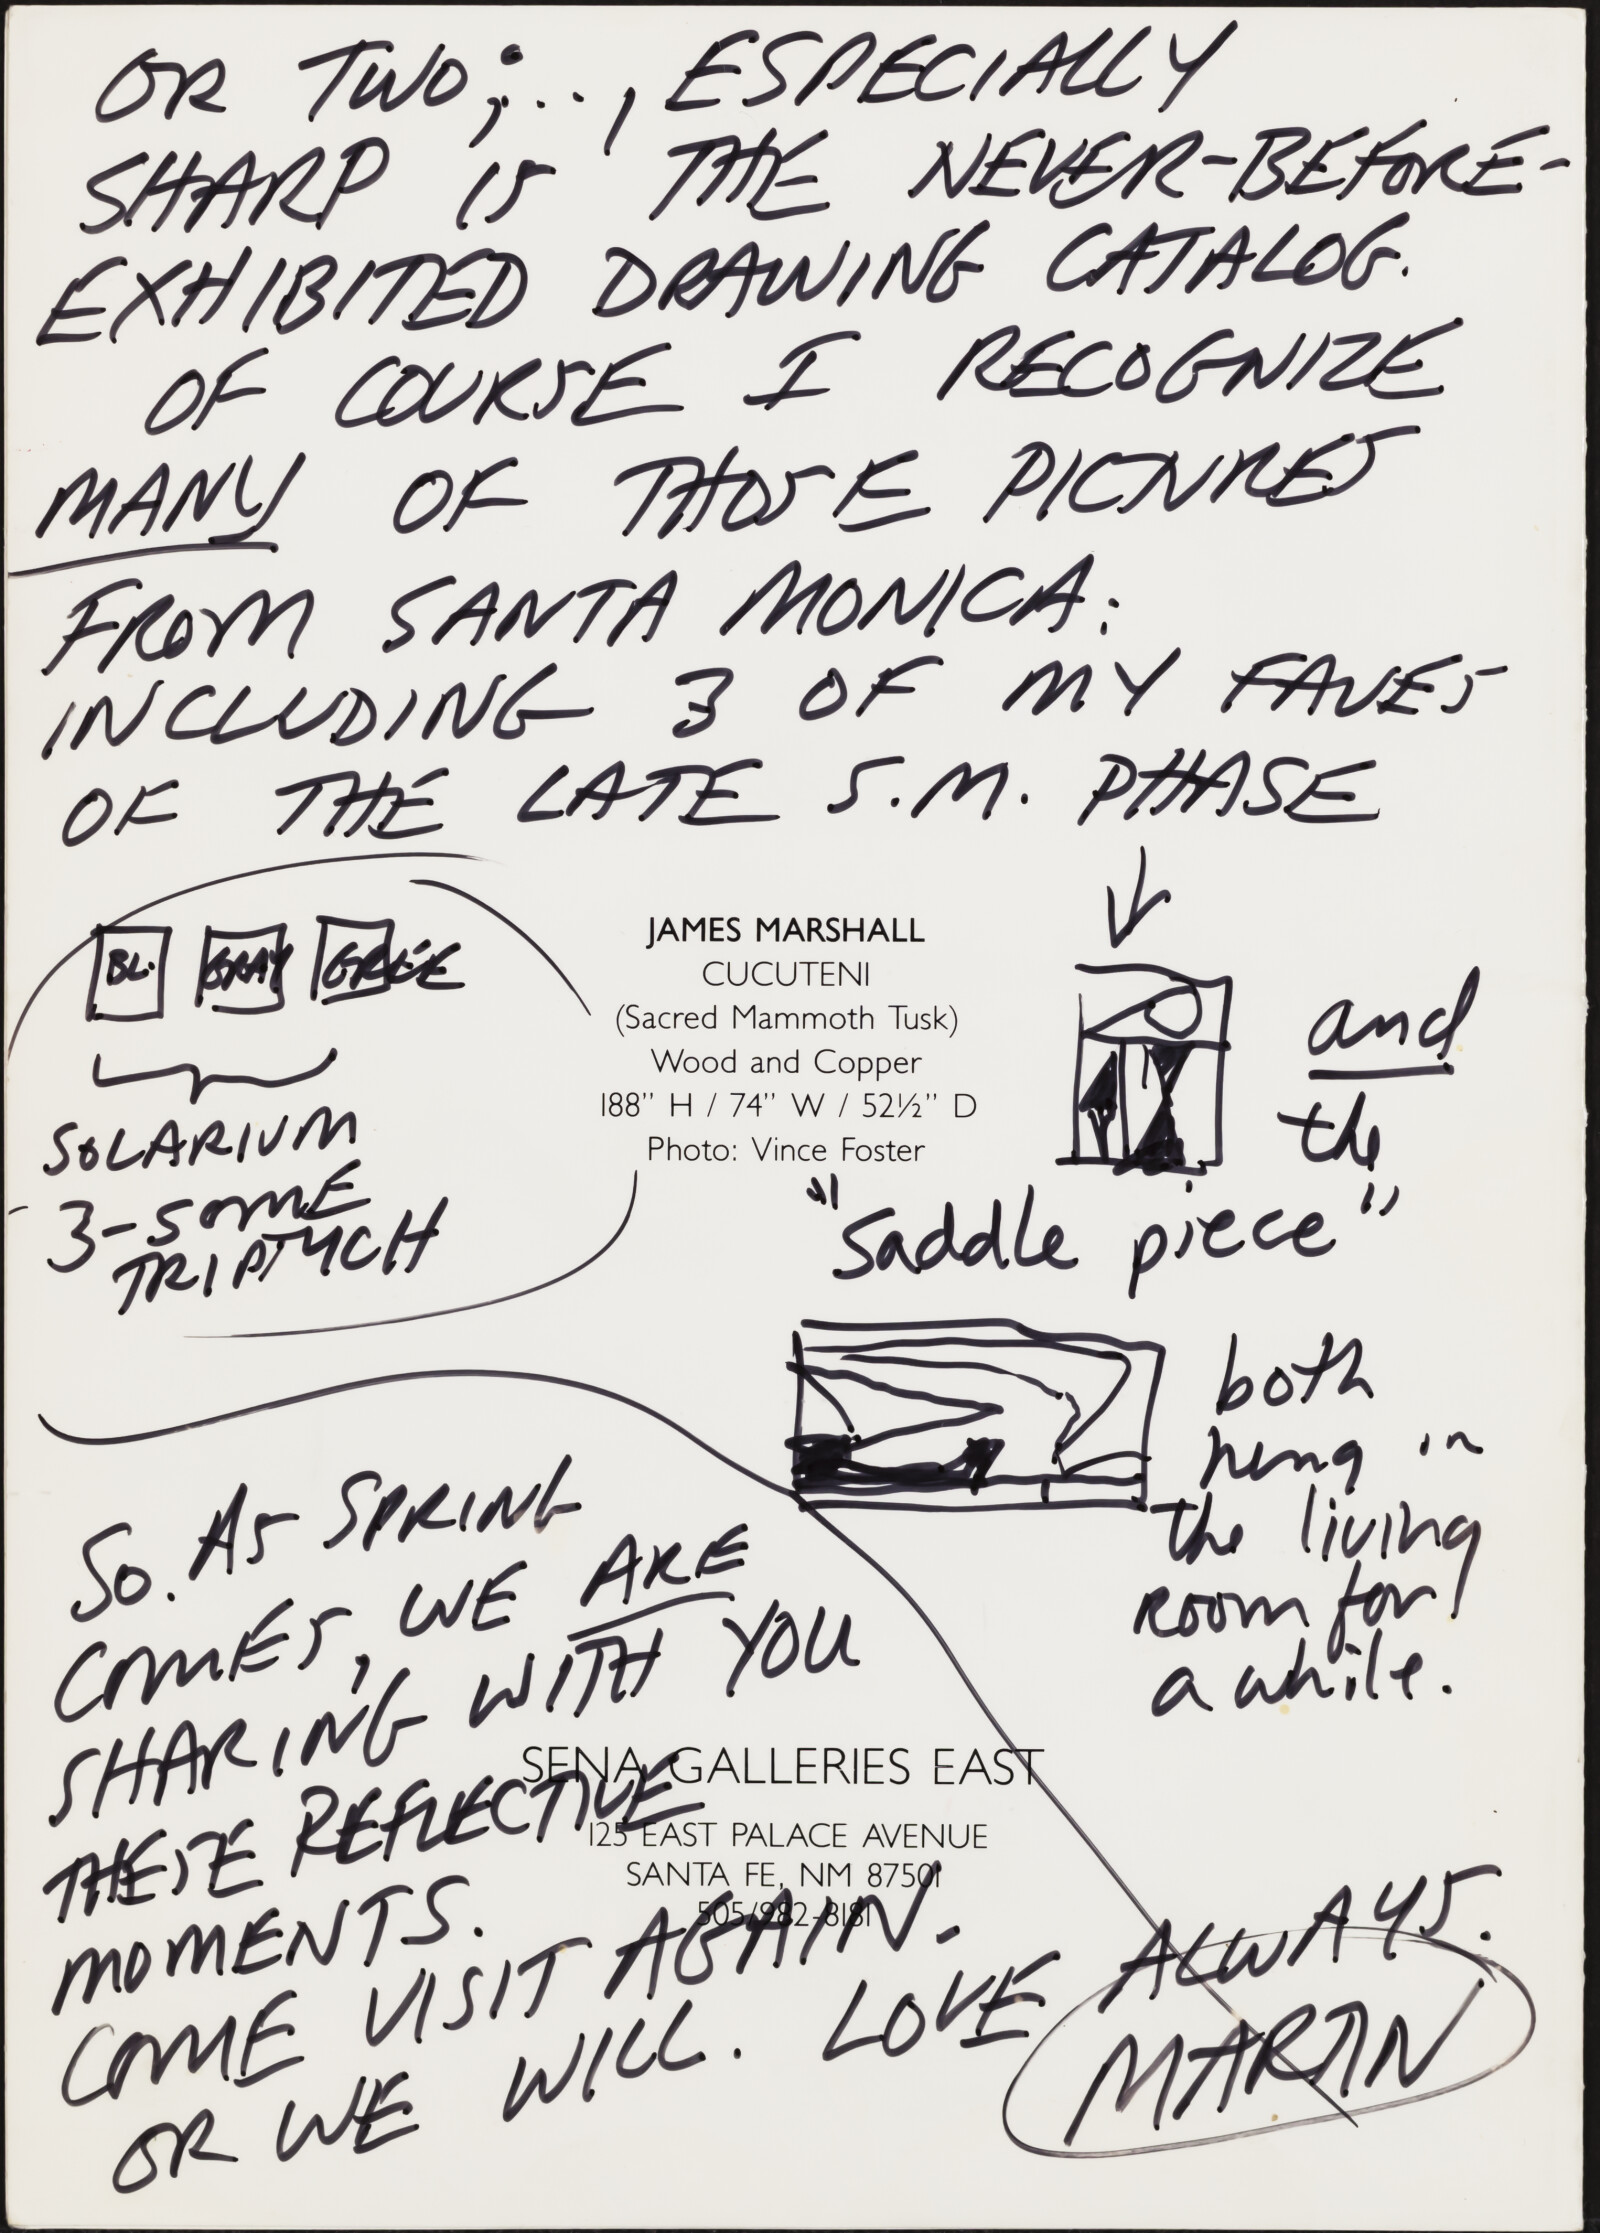 OR TWO;..., ESPECIALLY
SHARP IS THE NEVER-BEFORE-
EXHIBITED DRAWING CATALOG.
OF COURSE I RECOGNIZE
MANY OF THOSE PICTURES
FROM SANTA MONICA:
INCLUDING 3 OF MY FAVES
OF THE LATE S.M. PHASE
BL. GRAY GREE
SOLARIUM
3-SOME
TRIPTYCH
JAMES MARSHALL
CUCUTENI
(Sacred Mammoth Tusk)
Wood and Copper
188" H / 74" W / 52½" D
Photo: Vince Foster
and
the
"Saddle piece"
both
hung in
the living
room for
a while.
SO. AS SPRING
COMES, WE ARE
SHARING WITH YOU
THESE REFLECTIVE
MOMENTS.
COME VISIT AGAIN.
OR WE WILL. LOVE ALWAYS.
MARTIN
SENA GALLERIES EAST
125 EAST PALACE AVENUE
SANTA FE, NM 87501
505/982-8181